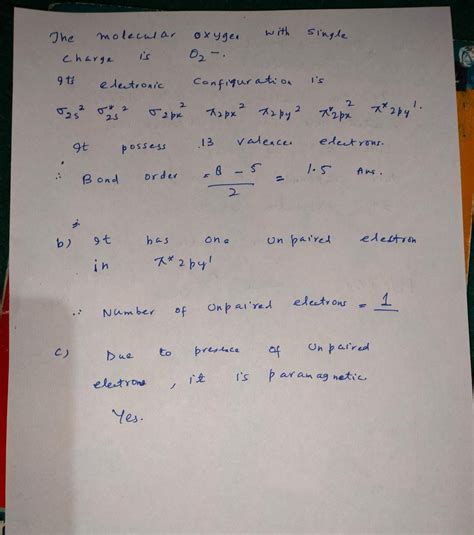 The molecular oxygen with single
charge is O2−.
Its electronic configuration is
σ2s² σ*2s² σ2px² π2px² π2py² π*2px² π*2py¹.
It possess 13 valence electrons.
∴ Bond order = 8 − 5 / 2 = 1.5 Ans.
b) It has one unpaired electron
in π*2py¹
∴ Number of unpaired electrons = 1
c) Due to presence of unpaired
electrons, it is paramagnetic
Yes.